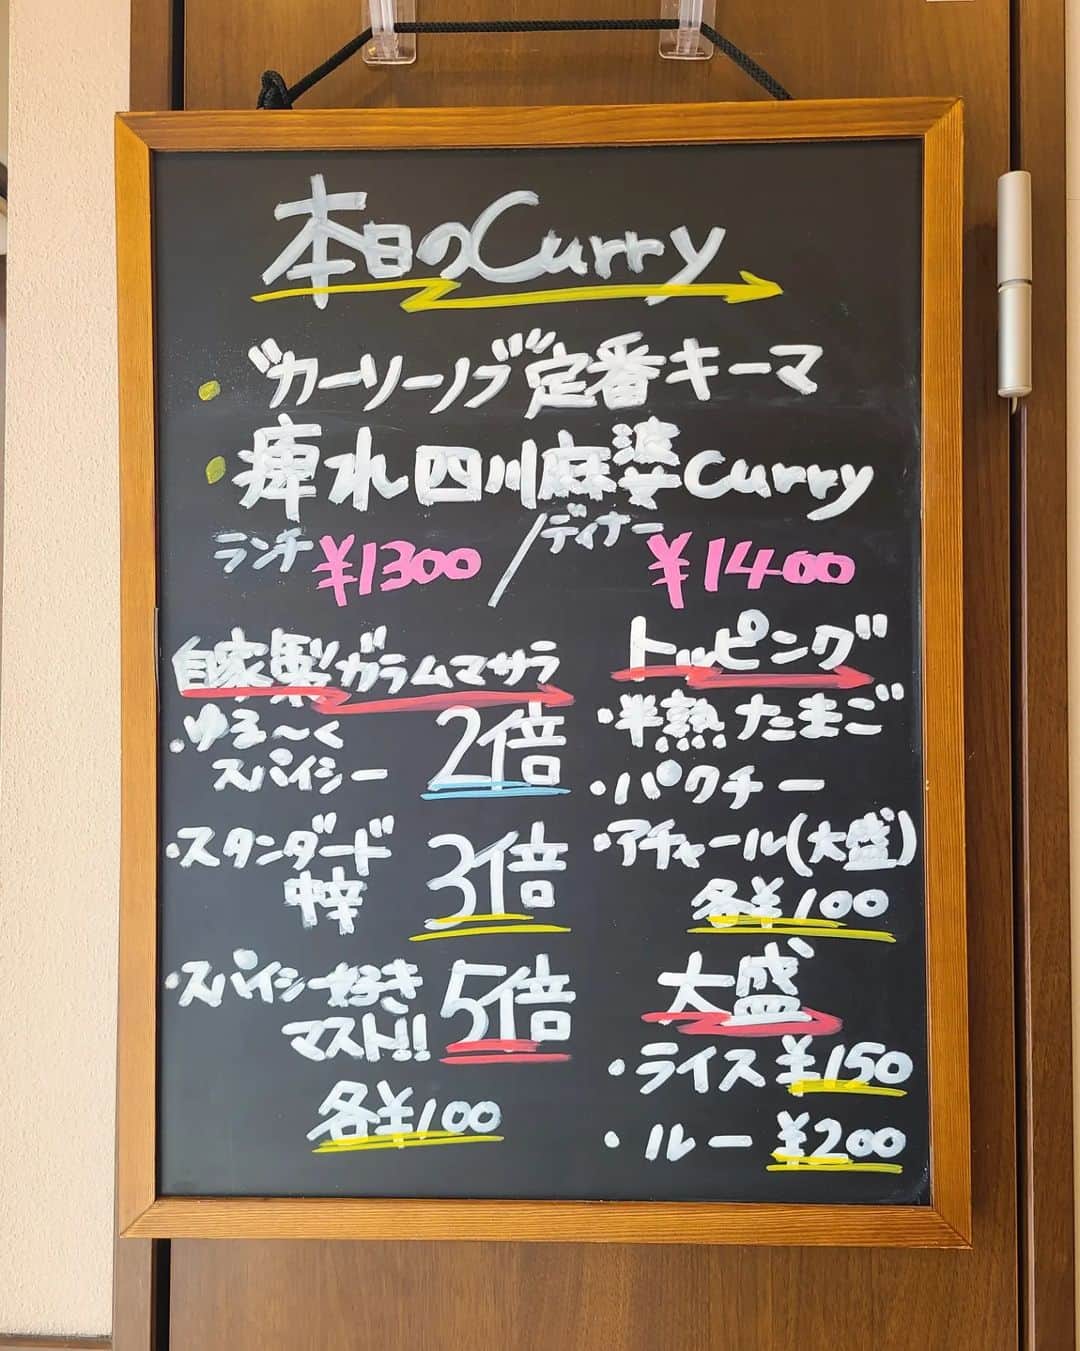 本日のCurry
・"カーソーノブ"定番キーマ
・痺れ四川麻婆Curry
ランチ ¥1300 / ディナー ¥1400
自家製ガラムマサラ
・ゆる〜く
スパイシー 2倍
・スタンダード
中辛 3倍
・スパイシー好き
マスト!! 5倍
各¥100
トッピング
・半熟たまご
・パクチー
・アチャール(大盛)
各¥100
大盛
・ライス ¥150
・ルー ¥200